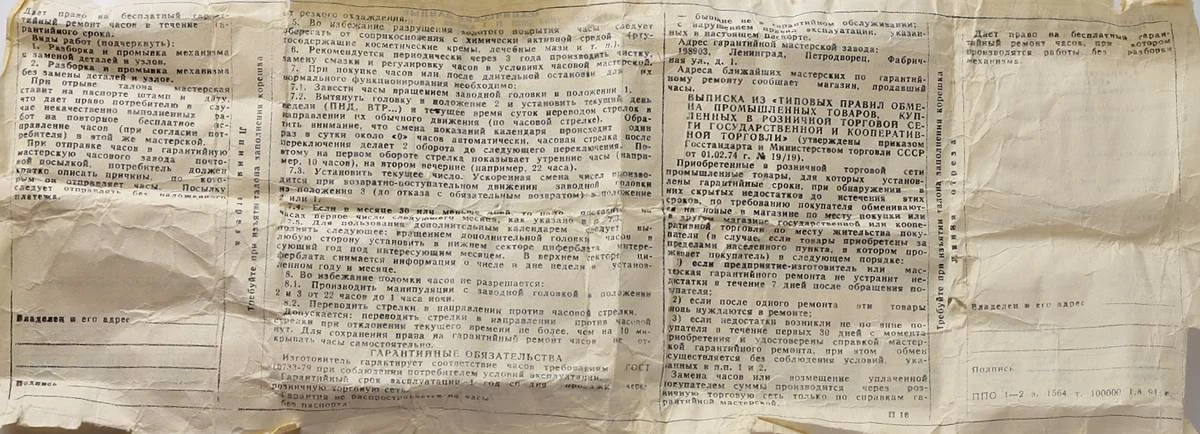 Дает право на бесплатный гаран-
тийный ремонт часов в течение га-
рантийного срока.
Виды работ (подчеркнуть):
1. Разборка и промывка механизма
с заменой деталей и узлов.
2. Разборка и промывка механизма
без замены деталей и узлов.
При отрыве талона мастерская
ставит на паспорте штамп и дату,
что дает право потребителю в слу-
чае некачественно выполненных ра-
бот на повторное бесплатное ис-
правление часов (при согласии пот-
ребителя) в этой же мастерской.
При отправке часов в гарантийную
мастерскую часового завода почто-
вой посылкой, потребитель должен
кратко описать причины, по кото-
рым он отправляет часы. Посылку
следует отправлять без наложенного
платежа.
Владелец и его адрес
Подпись
Линия отреза
Требуйте при изъятии талона заполнения корешка
от резкого охлаждения.
5. Во избежание разрушения золотого покрытия часы следует
оберегать от соприкосновения с химически активной средой (рту-
тьсодержащие косметические кремы, лечебные мази и т. п.).
6. Рекомендуется периодически через 3 года производить чистку,
замену смазки и регулировку часов в условиях часовой мастерской.
7. При покупке часов или после длительной остановки для их
нормального функционирования необходимо:
7.1. Завести часы вращением заводной головки в положении 1.
7.2. Вытянуть головку в положение 2 и установить текущий день
недели (ПНД, ВТР...) и текущее время суток переводом стрелок в
направлении их обычного движения (по часовой стрелке). Обра-
тить внимание, что смена показаний календаря происходит один
раз в сутки около «0» часов автоматически, часовая стрелка после
переключения делает 2 оборота до следующего переключения. По-
этому на первом обороте стрелка показывает утренние часы (напри-
мер, 10 часов), на втором вечерние (например, 22 часа).
7.3. Установить текущее число. Ускоренная смена чисел произво-
дится при возвратно-поступательном движении заводной головки
из положения 3 (до отказа с обязательным возвратом) в положение
2 или 1.
7.4. Если в месяце 30 или меньше дней, то надо поставить на
часах первое число следующего месяца, как указано в п. 7.3.
7.5. Для пользования дополнительным календарем следует вы-
полнять следующее: вращением дополнительной головки часов в
любую сторону установить в нижнем секторе циферблата интере-
сующий год под интересующим месяцем. В верхнем секторе ци-
ферблата снимается информация о числе и дне недели в установ-
ленном году и месяце.
8. Во избежание поломки часов не разрешается:
8.1. Производить манипуляции с заводной головкой в положении
2 и 3 от 22 часов до 1 часа ночи.
8.2. Переводить стрелки в направлении против часовой стрелки.
Допускается: переводить стрелки в направлении против часовой
стрелки при отклонении текущего времени не более, чем на 10 ми-
нут. Для сохранения права на гарантийный ремонт часов не от-
крывать часы самостоятельно.
ГАРАНТИЙНЫЕ ОБЯЗАТЕЛЬСТВА
Изготовитель гарантирует соответствие часов требованиям ГОСТ
10733-79 при соблюдении потребителем условий эксплуатации.
Гарантийный срок эксплуатации 1 год со дня продажи через
розничную торговую сеть.
Гарантия не распространяется на часы
без паспорта
бывшие не в гарантийном обслуживании;
с нарушением правил эксплуатации, указан-
ных в настоящем паспорте.
Адрес гарантийной мастерской завода:
198903, Ленинград, Петродворец, Фабрич-
ная ул., д. 1.
Адреса ближайших мастерских по гарантий-
ному ремонту сообщает магазин, продавший
часы.
ВЫПИСКА ИЗ «ТИПОВЫХ ПРАВИЛ ОБМЕ-
НА ПРОМЫШЛЕННЫХ ТОВАРОВ, КУП-
ЛЕННЫХ В РОЗНИЧНОЙ ТОРГОВОЙ СЕ-
ТИ ГОСУДАРСТВЕННОЙ И КООПЕРАТИВ-
НОЙ ТОРГОВЛИ» (утверждены приказом
Госстандарта и Министерством торговли СССР
от 01.02.74 г. № 19/19).
Приобретенные в розничной торговой сети
промышленные товары, для которых установ-
лены гарантийные сроки, при обнаружении в
них скрытых недостатков до истечения этих
сроков, по требованию покупателя обменивают-
ся на новые в магазине по месту покупки или
в другом магазине Государственной или коопе-
ративной торговли по месту жительства поку-
пателя (в случае, если товары приобретены за
пределами населенного пункта, в котором про-
живает покупатель) в следующем порядке:
1) если предприятие-изготовитель или мас-
терская гарантийного ремонта не устранит не-
достатки в течение 7 дней после обращения по-
купателя;
2) если после одного ремонта эти товары
вновь нуждаются в ремонте;
3) если недостатки возникли не по вине по-
купателя в течение первых 30 дней с момента
приобретения и удостоверены справкой мастер-
ской гарантийного ремонта, при этом обмен
осуществляется без соблюдения условий, ука-
занных в п.п. 1 и 2.
Замена часов или возмещение уплаченной
покупателем суммы производится через роз-
ничную торговую сеть только по справкам га-
рантийной мастерской.
П 16
Требуйте при изъятии талона заполнения корешка
Линия отреза
Дает право на бесплатный гаран-
тийный ремонт часов, при котором
производятся работы без разборки
механизма.
Владелец и его адрес
Подпись
ППО 1—2 з. 1564 т. 100000 1.8.91 г.